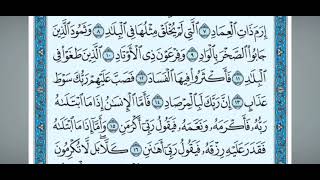 إِرَمَ ذَاتِ ٱلْعِمَادِ ٧ ٱلَّتِى لَمْ يُخْلَقْ مِثْلُهَا فِى ٱلْبِلَٰدِ ٨ وَثَمُودَ ٱلَّذِينَ
جَابُوا۟ ٱلصَّخْرَ بِٱلْوَادِ ٩ وَفِرْعَوْنَ ذِى ٱلْأَوْتَادِ ١٠ ٱلَّذِينَ طَغَوْا۟ فِى
ٱلْبِلَٰدِ ١١ فَأَكْثَرُوا۟ فِيهَا ٱلْفَسَادَ ١٢ فَصَبَّ عَلَيْهِمْ رَبُّكَ سَوْطَ
عَذَابٍ ١٣ إِنَّ رَبَّكَ لَبِٱلْمِرْصَادِ ١٤ فَأَمَّا ٱلْإِنسَٰنُ إِذَا مَا ٱبْتَلَىٰهُ
رَبُّهُۥ فَأَكْرَمَهُۥ وَنَعَّمَهُۥ فَيَقُولُ رَبِّىٓ أَكْرَمَنِ ١٥ وَأَمَّآ إِذَا مَا ٱبْتَلَىٰهُ
فَقَدَرَ عَلَيْهِ رِزْقَهُۥ فَيَقُولُ رَبِّىٓ أَهَٰنَنِ ١٦ كَلَّا بَل لَّا تُكْرِمُونَ